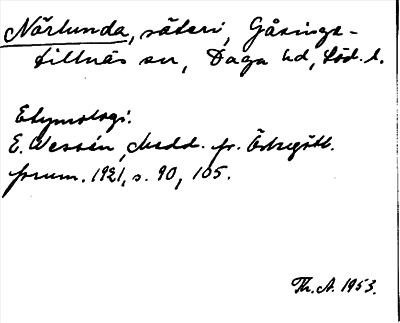 Närlunda, säteri, Gåsinge-
Dillnäs sn, Daga hd, Söd. l.
Etymologi.
E. Wessén, Medd. fr. Östergötl.
fornm. 1921, s. 90, 105.
Th. A. 1953.